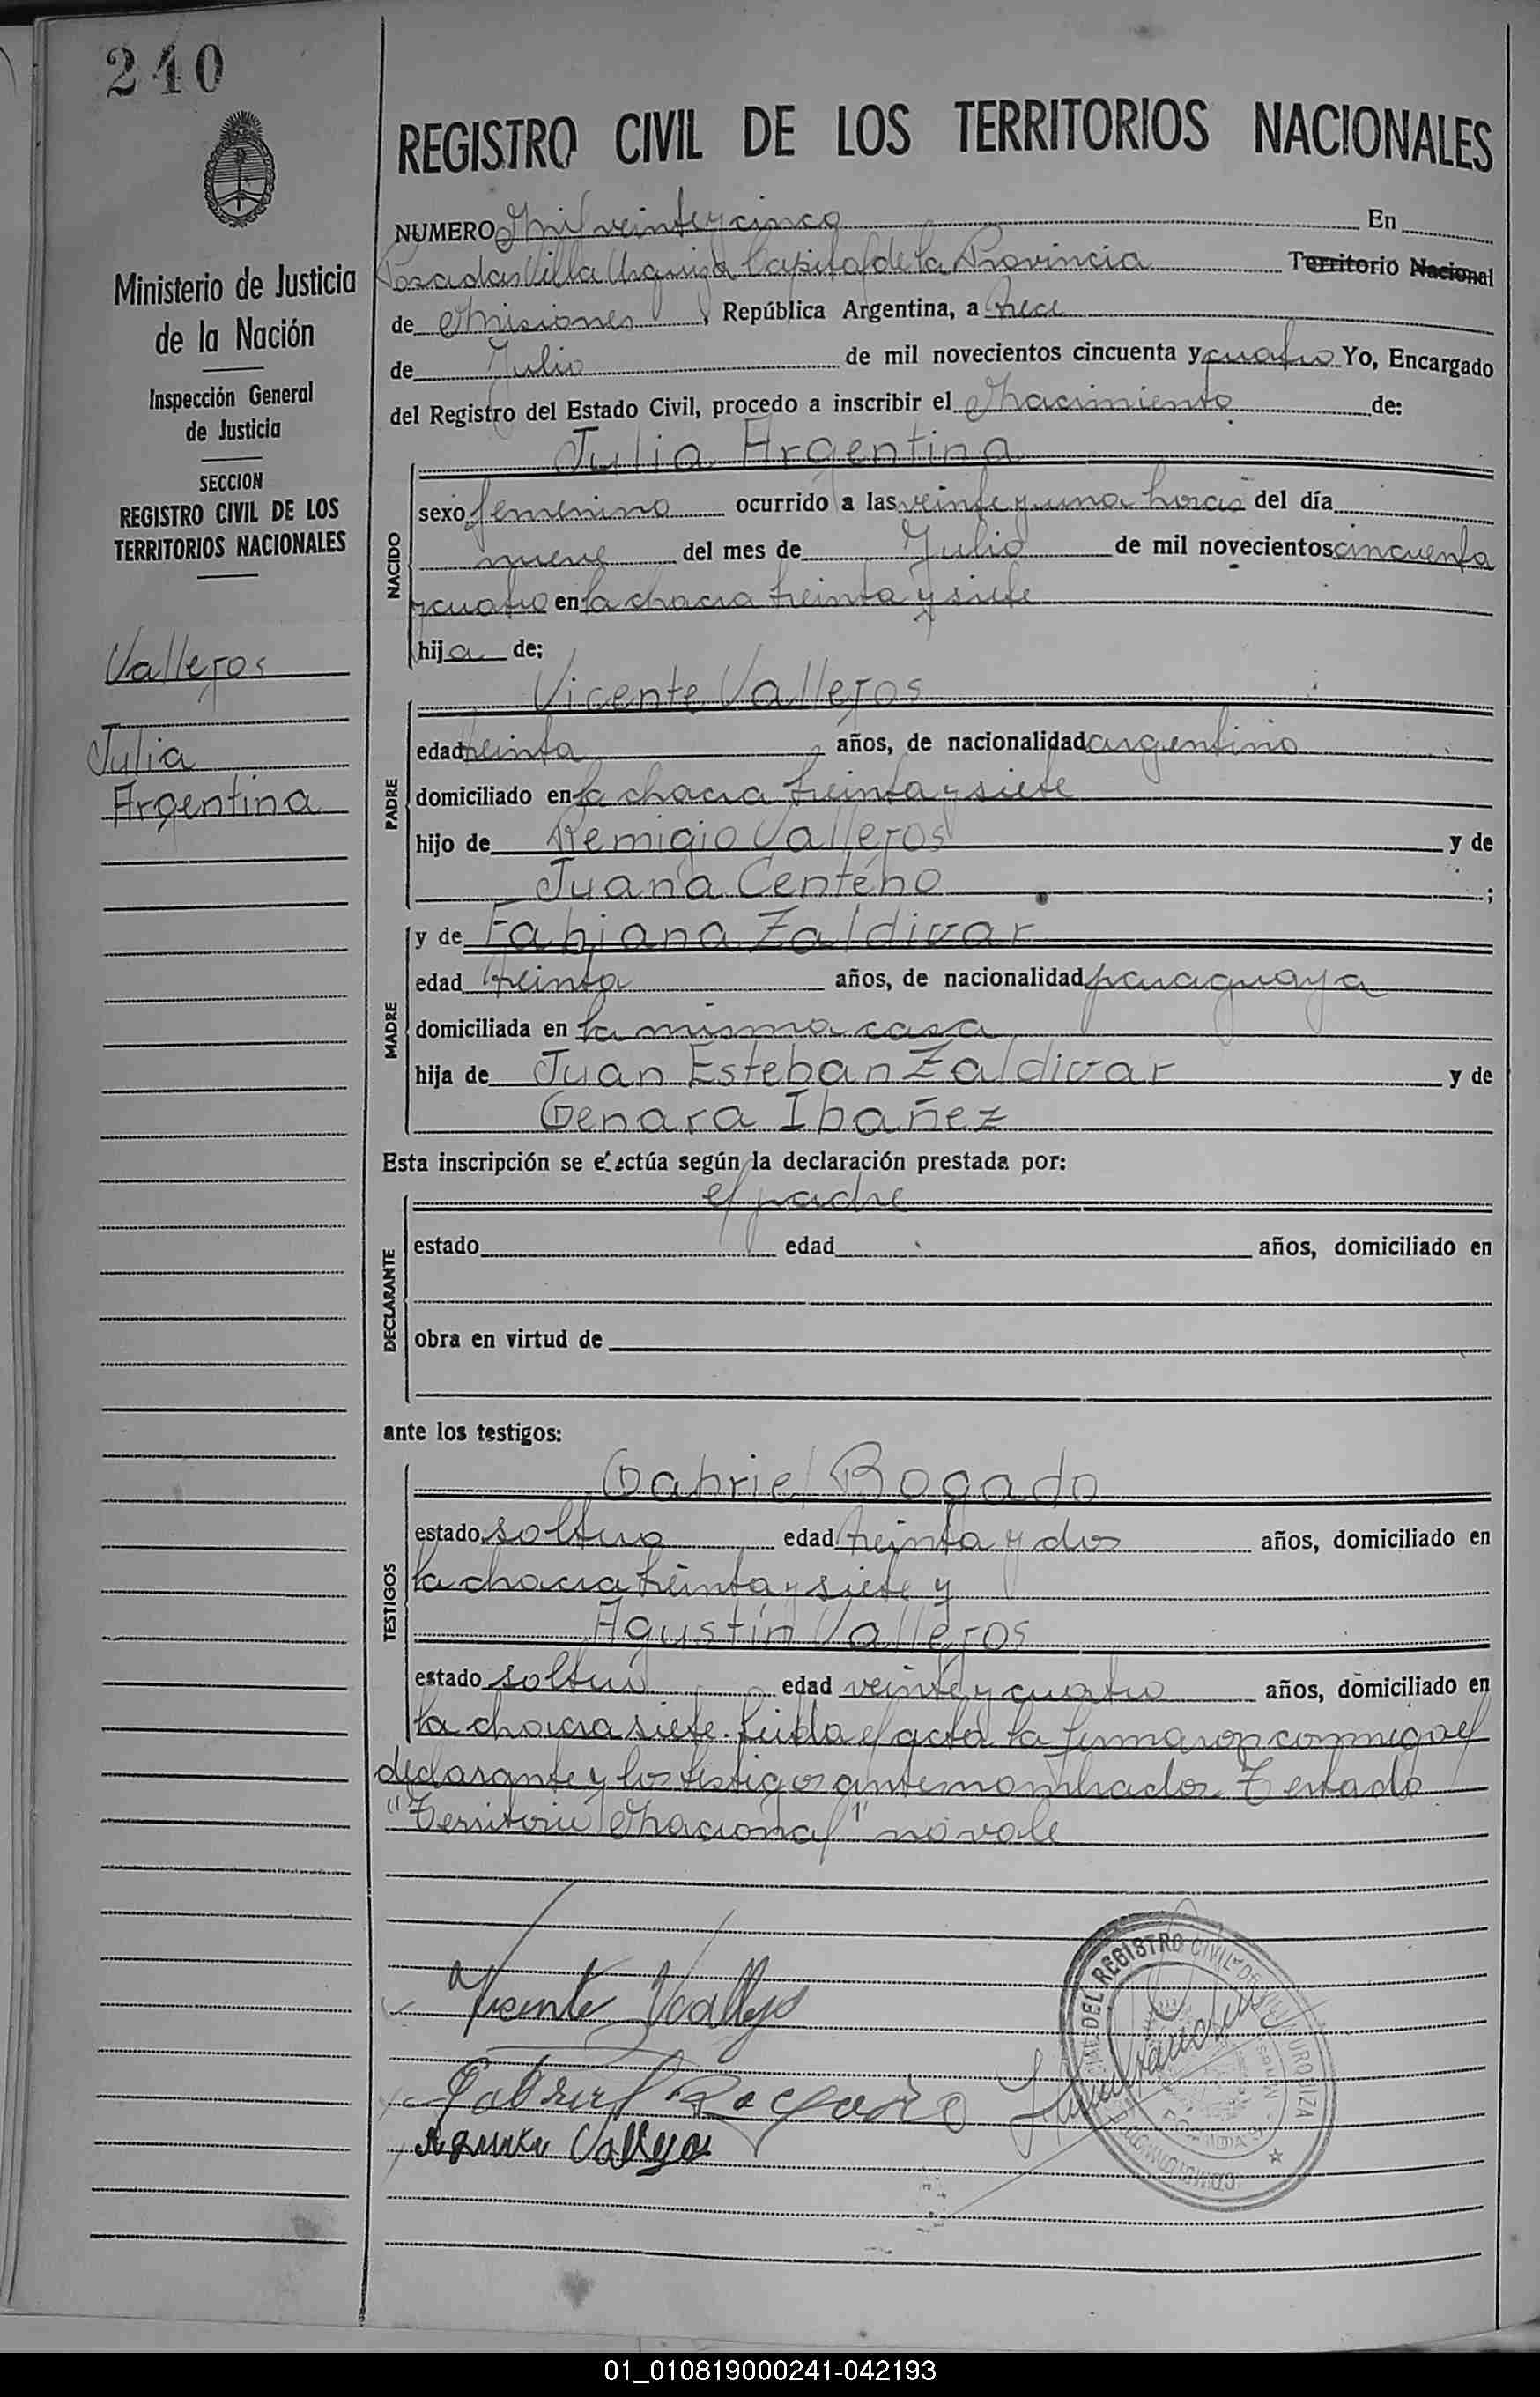 240
Ministerio de Justicia
de la Nación
Inspección General
de Justicia
SECCION
REGISTRO CIVIL DE LOS
TERRITORIOS NACIONALES
Vallejos
Julia
Argentina
REGISTRO CIVIL DE LOS TERRITORIOS NACIONALES
NUMERO Mil veinte y cinco En
Posadas Villa Urquiza Capital de la Provincia Territorio Nacional
de Misiones, República Argentina, a trece
de Julio de mil novecientos cincuenta y cuatro Yo, Encargado
del Registro del Estado Civil, procedo a inscribir el Nacimiento de:
Julia Argentina
NACIDO
sexo femenino ocurrido a las veinte y una horas del día
nueve del mes de Julio de mil novecientos cincuenta
y cuatro en la chacra treinta y siete
hija de:
Vicente Vallejos
PADRE
edad treinta años, de nacionalidad argentino
domiciliado en la chacra treinta y siete
hijo de Remigio Vallejos y de
Juana Centeno ;
MADRE
y de Fabiana Zaldivar
edad treinta años, de nacionalidad paraguaya
domiciliada en la misma casa
hija de Juan Esteban Zaldivar y de
Genara Ibañez
Esta inscripción se efectúa según la declaración prestada por:
el padre
DECLARANTE
estado edad años, domiciliado en
obra en virtud de
ante los testigos:
Gabriel Bogado
TESTIGOS
estado soltero edad treinta y dos años, domiciliado en
la chacra treinta y siete y
Agustín Vallejos
estado soltero edad veinte y cuatro años, domiciliado en
la chacra siete. Leida el acta la firmaron conmigo el
declarante y los testigos antes nombrados. Testado
"Territorio Nacional" no vale
Vicente Vallejos
Gabriel Bogado
Agustin Vallejos
DEL REGISTRO CIVIL DE VILLA URQUIZA
POSADAS
01_010819000241-042193